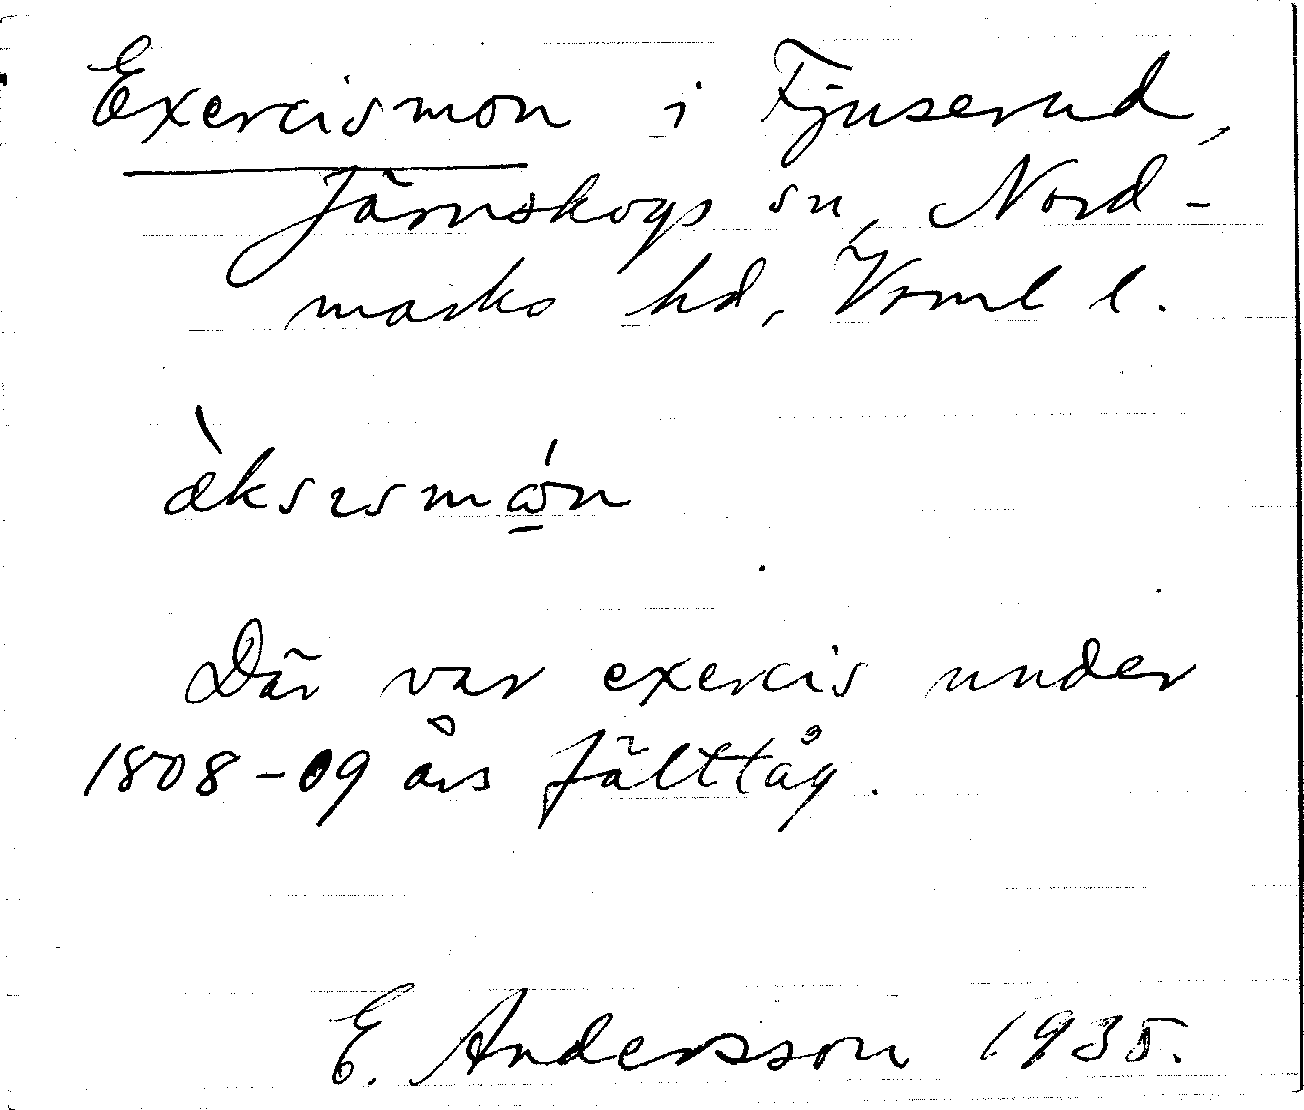 Exercismon i Fjuserud,
Järnskogs sn, Nord-
marks hd, Vrml l.
æ̀ksısmώ̲n
Där var exercis under
1808-09 års fälttåg.
E. Andersson 1935.